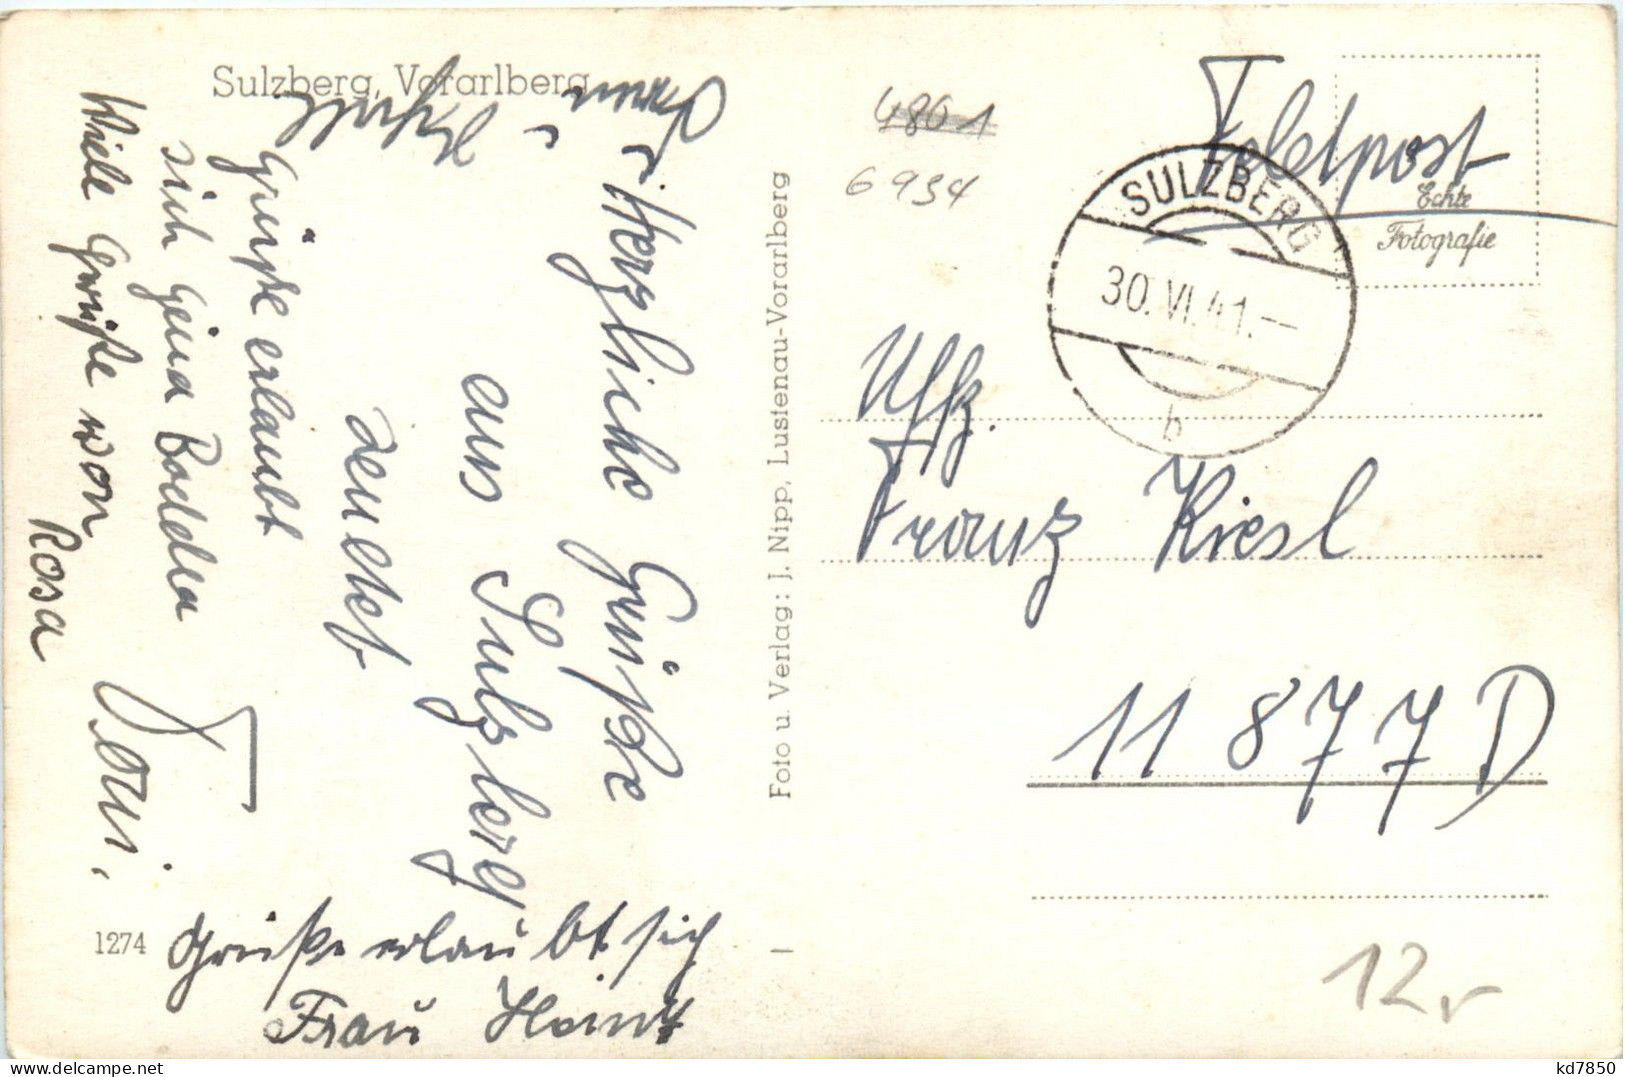 Sulzberg, Vorarlberg
Herzliche Grüße
aus Sulzberg
sendet
Toni.
Grüße erlaubt
sich
Viele Grüße von
Rosa
Grüße erlaubt sich
Frau
1274
Foto u. Verlag: J. Nipp, Lustenau-Vorarlberg
I
4801
6934
Feldpost
Echte
Fotografie
SULZBERG
30.VI.41.—
b
Uffz.
Franz Kiesl
11877D
12,-
kd7850